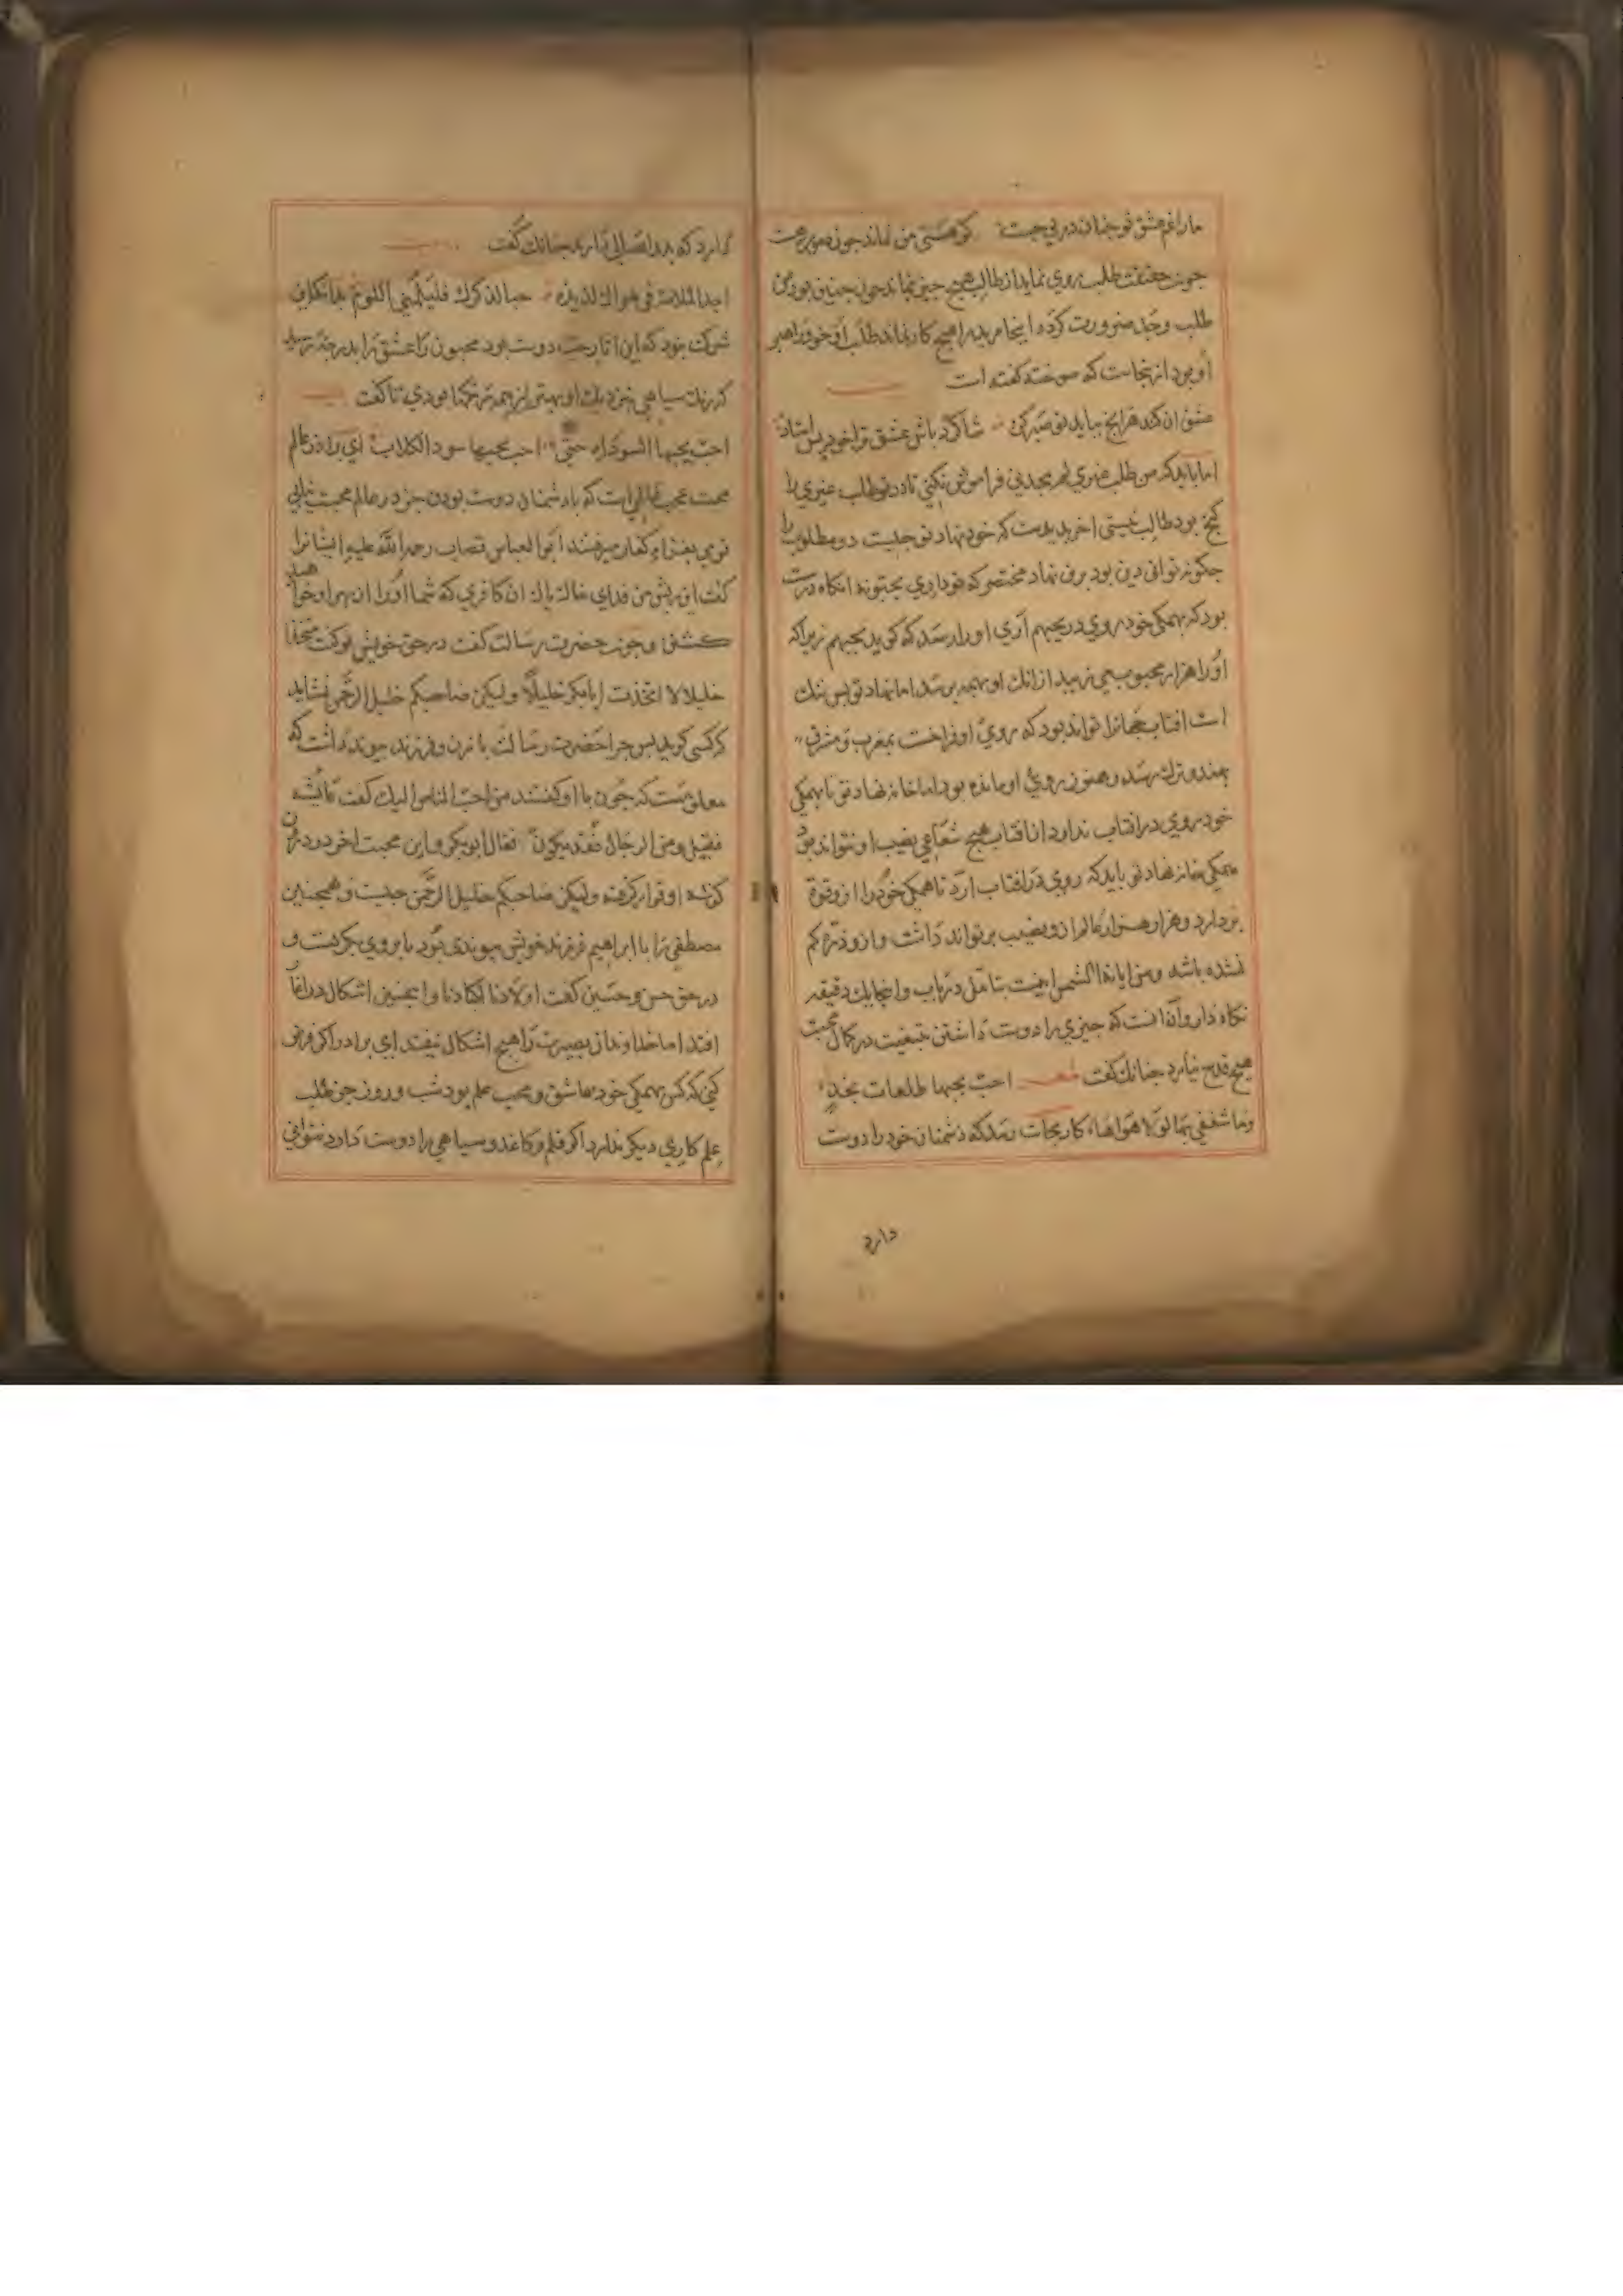 مارا غم عشق تو جنان در بی جست کز هستی من نماند جون موی
جون حقیقت طلب روی نماید از طالب هیچ جیز نماند جون جنین بود من
طلب وجد ضرورت کرده اینجا مرید را هیچ کار نماند طلب او خود راهبر
او بود از ینجاست که سوخته کفته است
عشق آن کند هر آنج بباید تو صبر کن شاکرد باش عشق ترا خود بس استاد
اما باید که من طلب غیری لم یجدنی فراموش نکنی تا در تو طلب غیری را
کنج بود طالب نیستی آخر بدیدست که خود نهاد تو جیست دو مطلوب را
جکونه توانی دین بود برین نهاد مختصر که تو داری یحبونه آنکاه درست
بود که بهمکی خود روی در یحبهم آری او را رسد که کوید یحبهم زیرا که
او را هزار محبوب می زیبد از انک او بهمه برسد اما نهاد تو بس تنک
است آفتاب جهانرا تواند بود که روی او فراخست بمغرب و مشرق
بهند و ترک برسد و هنوز روی او مانده بود اما خانه نهاد تو تا بهمکی
خود روی در آفتاب نیاورد از آفتاب هیچ شعاعی نصیب او نتواند بود
بهمکی خانه نهاد تو باید که روی در آفتاب آرد تا همکی خود را ازو قوة
بردارد و هزار هزار عالم ازو نصیب برتواند داشت و ازو ذره کم
نشده باشد و من ایاته الشمس اینست بتأمل دریاب و اینجا یک دقیقه
نکاه دار و آن آنست که جیزی را دوست داشتن بتبعیت در کمال محبت
هیچ قدح نیارد جنانک کفت شعر احب بحبها طلعات نجد
وما شغفی بها لولا هواها کار بجائی رسد که دشمنان خود را دوست
دارد
دارد که بدو اتصالی دارند جنانک کفت
اجد الملامة فی هواک لذیذة حبا لذکرک فلیلمنی اللوم
شرک نبود که این اتار حب دوست بود مجنون را عشق را بدرجه
که رنک سیاهی بنزدیک او بهترین همه رنکها بودی تا کفت
احب بحبها السودان حتی احب بحبها سود الکلاب ای برادر عالم
محبت عجب عالمی است که با دشمنان دوست بودن جز در عالم محبت نیابی
قومی بغزای کفار میرفتند ابو العباس قصاب رحمة الله علیه ایشانرا
کفت این ریش من فدای خاک باک آن کافری که شما او را از بهر او خواهید
کشتن و جون حضرت رسالت کفت در حق خویش لو کنت متخذا
خلیلا لا اتخذت ابا بکر خلیلا و لیکن صاحبکم خلیل الرحمن نشاید
که کسی کوید بس جرا حضرت رسالت با زن و فرزند بیوند داشت که
معلومست که جون با او کفتند من احب الناس الیک کفت عائشه
فقیل ومن الرجال فقال ابو بکر و این محبت آخر در درون
کوشه او قرار کرفته و لیکن صاحبکم خلیل الرحمن جیست و همجنین
مصطفی را با ابراهیم فرزند خویش بیوندی بود تا بروی بکریست و
در حق حسن و حسین کفت اولادنا اکبادنا و اینجنین اشکال در راه
افتد اما خداوندان بصیرت را هیچ اشکال نیفتد ای برادر اکر فرض
کنی که کسی بهمکی خود عاشق و محب علم بود شب و روز جز طلب
علم کاری دیکر ندارد اکر قلم و کاغد و سیاهی را دوست دارد نتوانی